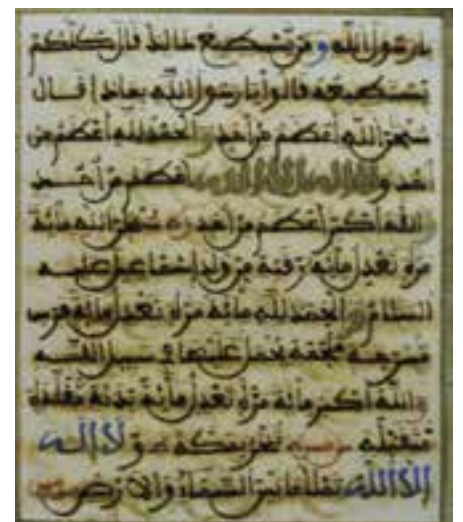 يارسول الله ومن يستطيع ذالك قال كلكم
يستطيعه قالوا يارسول الله بماذا قال
سبحن الله أعظم من أحد والحمد لله أعظم من
أحد ولا إله إلا الله أعظم من أحد
والله أكبر أعظم من أحد سبحن الله مائة
مرة تعدل مائة رقبة من ولد إسماعيل عليه
السلام والحمد لله مائة مرة تعدل مائة فرس
مسرجة ملجمة يحمل عليها في سبيل الله
والله أكبر مائة مرة تعدل مائة بدنة مقلدة
متقبلة تنحر بمكة ولا إله
إلا الله تملأ ما بين السماء والارض